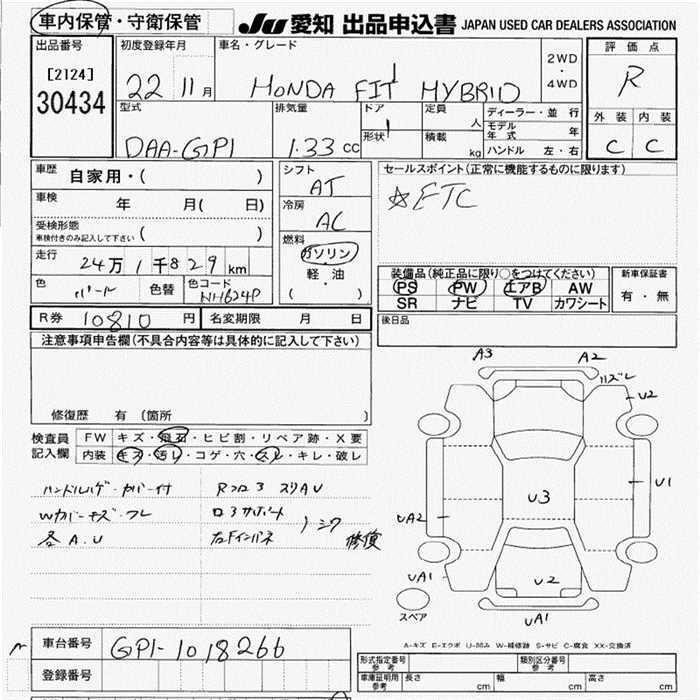 車内保管・守衛保管
JU 愛知 出品申込書 JAPAN USED CAR DEALERS ASSOCIATION
出品番号 初度登録年月 車名・グレード 2WD・4WD 評価点
[2124]
30434 22 11月 HONDA FIT HYBRID R
型式 排気量 ドア 定員 人 ディーラー・並行 外装 内装
形状 積載 kg モデル年式 年
DAA-GP1 1.33cc ハンドル 左・右 C C
車歴 自家用・( ) シフト セールスポイント(正常に機能するものに限ります)
AT ☆ETC
車検 年 月( 日) 冷房
AC
受検形態
車検付きのみ記入して下さい ( ) 燃料
ガソリン
走行 24万1千829km 軽・油
( ・ ) 装備品(純正品に限り○をつけてください) 新車保証書
色 パール 色替 色コード NH624P PS PW エアB AW 有・無
SR ナビ TV カワシート
R券 10810円 名変期限 月 日 後日品
注意事項申告欄(不具合内容等は具体的に記入して下さい)
修復歴 有 (箇所 )
検査員 FW キズ・飛石・ヒビ割・リペア跡・X要
記入欄 内装 キズ・汚レ・コゲ・穴・スレ・キレ・破レ
ハンドルハゲ・カバー付 Rフロ3 スリAU
Wカバーキズ・フレ ロ3サポート
各A.U 右Fインパネ
シワ 修復
A3 A2
ハズレ
U2
U3 U1
UA2
UA1 U2
スペア UA1
A-キズ E-エクボ U-凹み W-補修跡 S-サビ C-腐食 XX-交換済
車台番号 GP1-1018266
登録番号
形式指定番号 参考 類別区分番号 参考
車庫証明用 参考 長さ cm 幅 cm 高さ cm